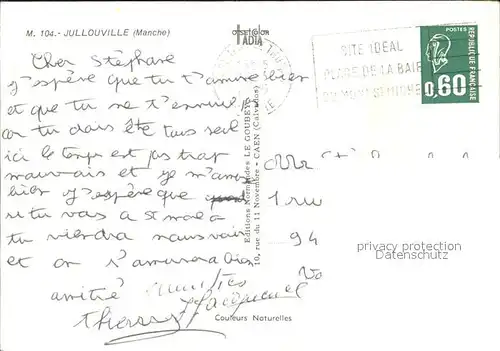 M. 104.- JULLOUVILLE (Manche)
OFFSET COLOR
IADIA
Cher Stéphane
j'espère que tu t'amuse bien
et que tu ne t'ennuie pas
car tu dois être tous seul
ici le temps est pas trop
mauvais et je m'amuse
bien j'espère que
si tu vas a St malo
tu viendra nous voir
et on s'amusera bien
amitié
Thierry
SITE IDEAL
PLAGE DE LA BAIE
DU MONT ST MICHEL
POSTES
REPUBLIQUE FRANÇAISE
0,60
Editions Normandes LE GOUBEY
10, rue du 11 Novembre - CAEN (Calvados)
1 rue
94
privacy protection
Datenschutz
Couleurs Naturelles